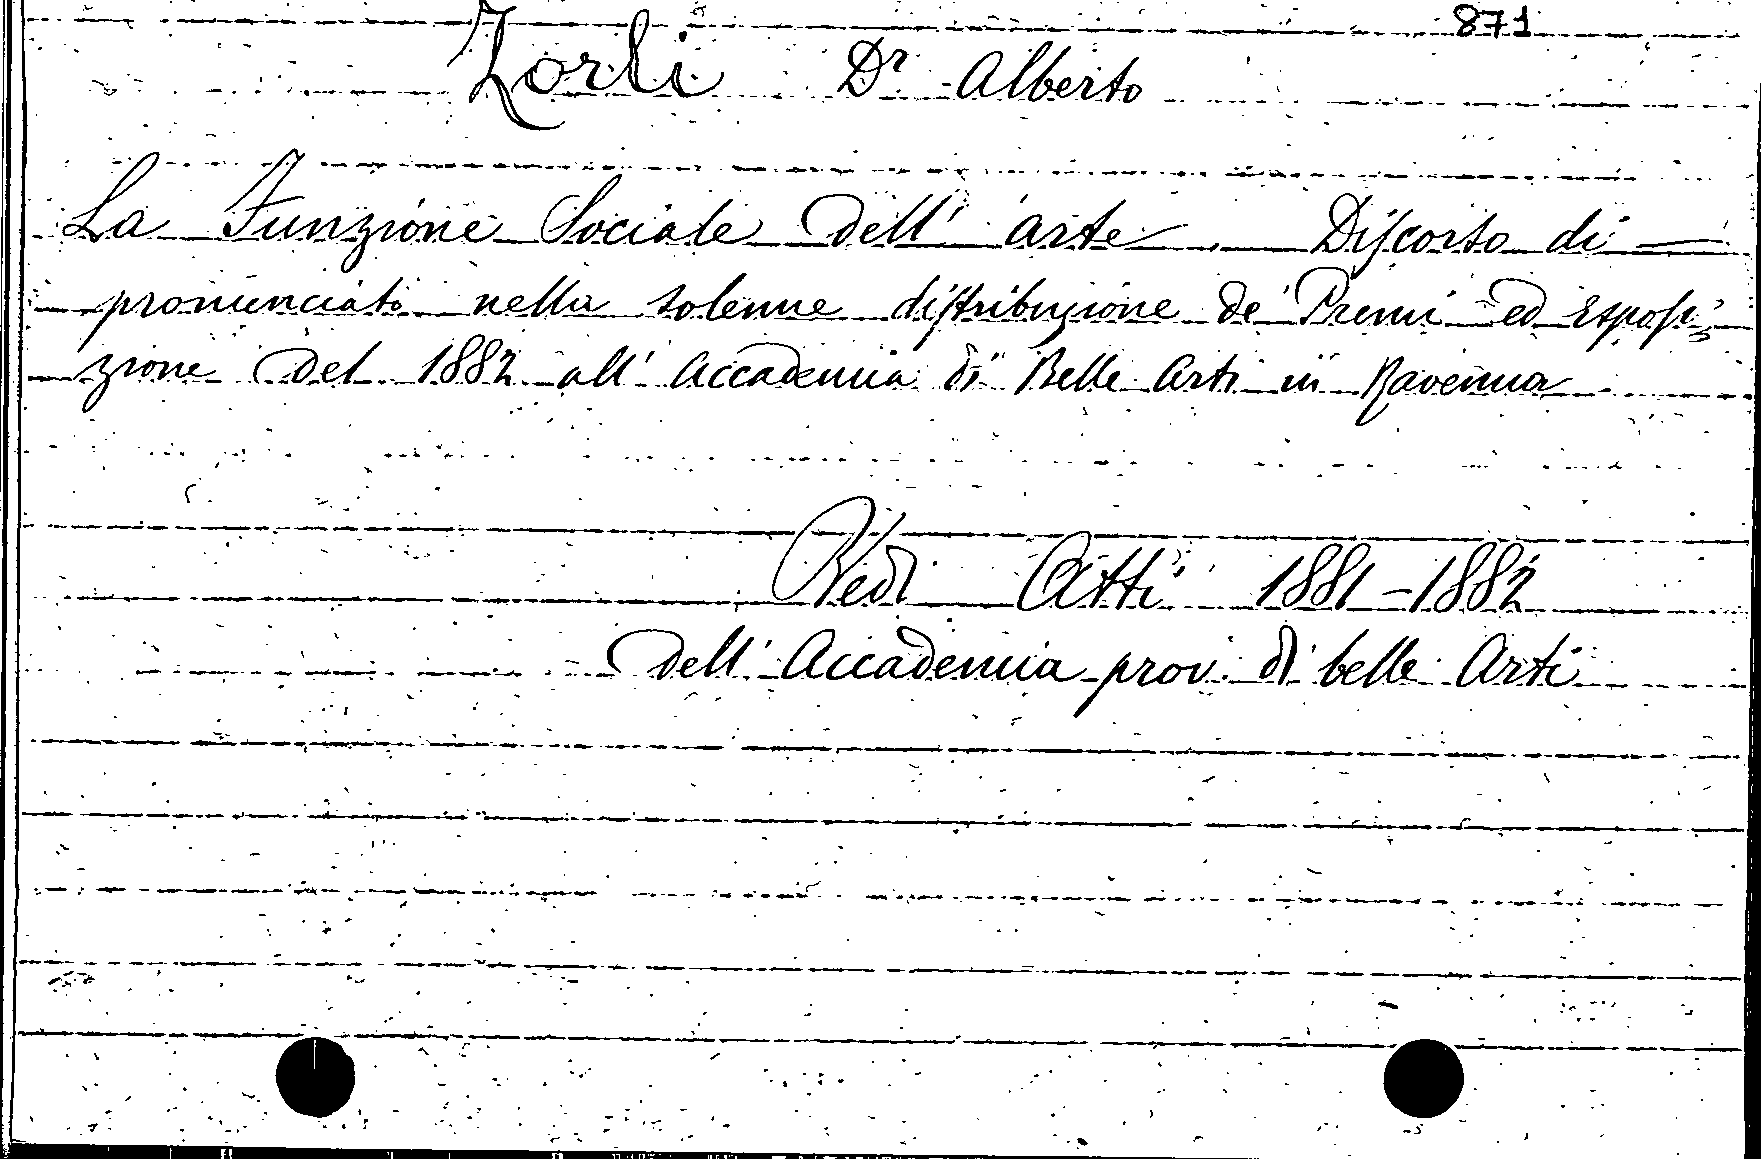 871
Zorli Dr Alberto
La Funzione Sociale dell' arte. Discorso di —
pronunciato nella solenne distribuzione de' Premi ed Esposi=
zione del 1882 all' Accademia di Belle Arti in Ravenna
Vedi Atti 1881-1882
dell' Accademia prov. di belle Arti